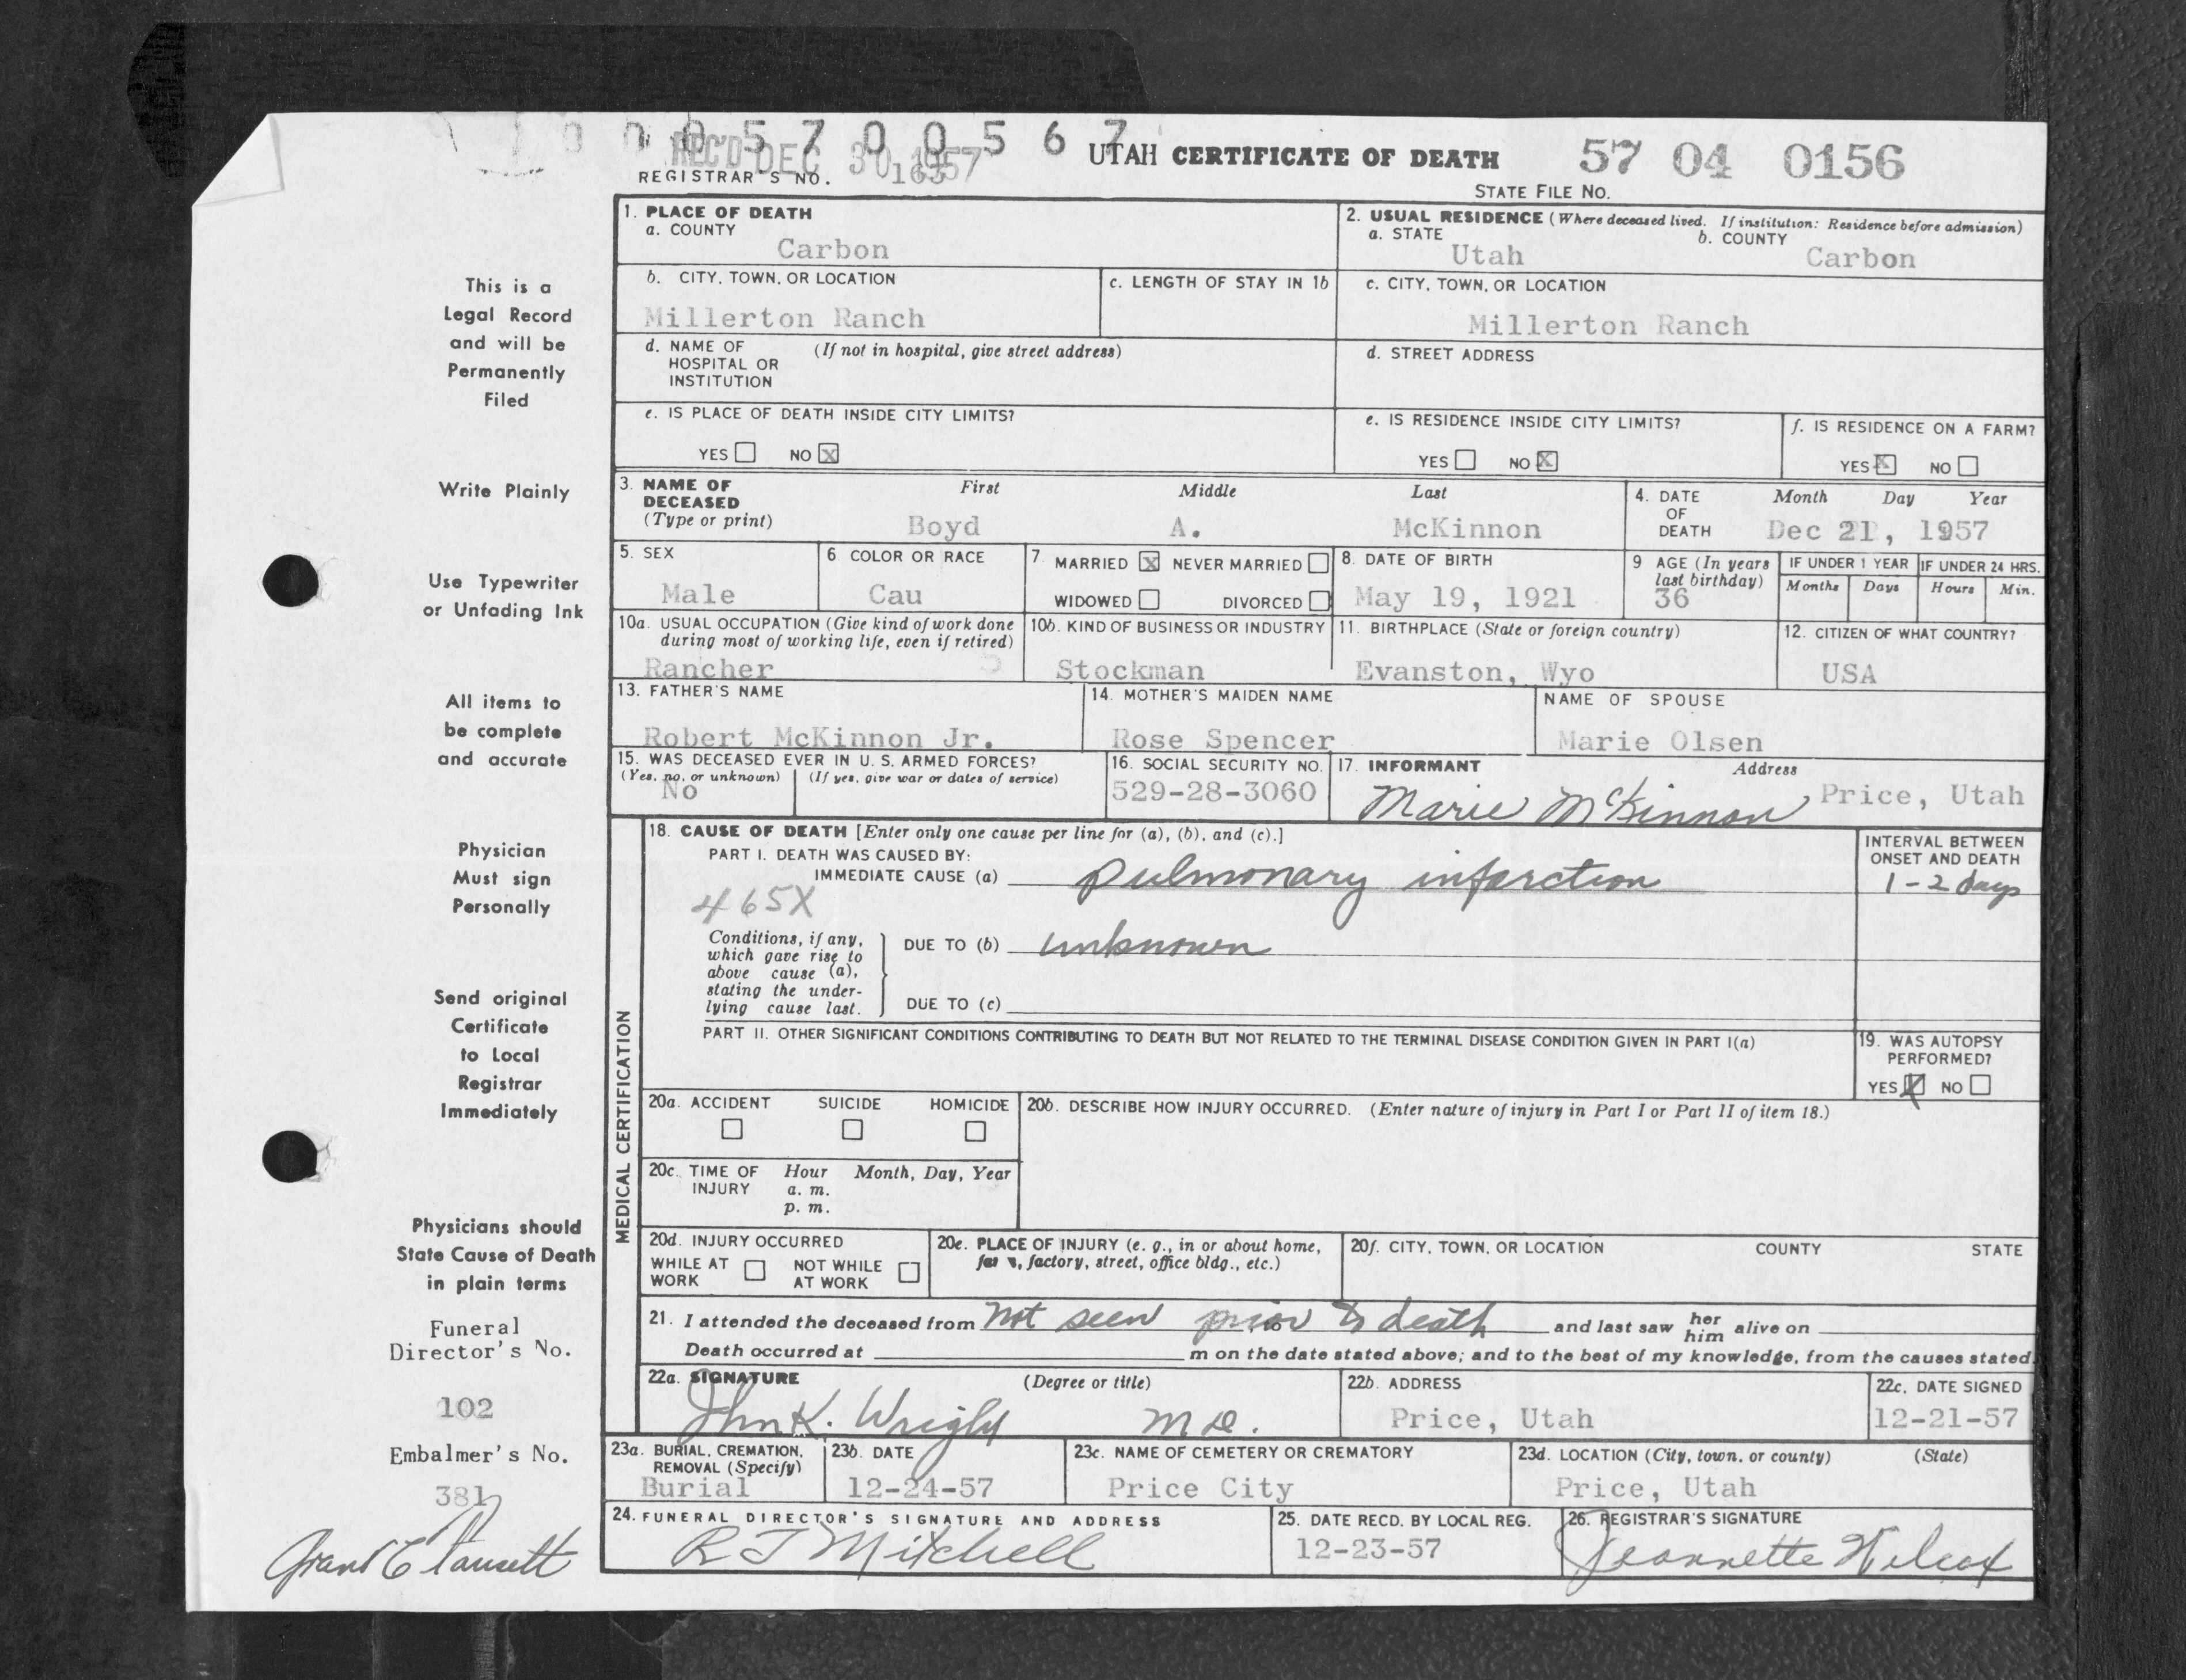 0 0 5 7 0 0 5 6 7
REC'D DEC 30 1957
REGISTRAR'S NO. 163
UTAH CERTIFICATE OF DEATH
57 04 0156
STATE FILE NO.
This is a
Legal Record
and will be
Permanently
Filed
Write Plainly
Use Typewriter
or Unfading Ink
All items to
be complete
and accurate
Physician
Must sign
Personally
Send original
Certificate
to Local
Registrar
Immediately
Physicians should
State Cause of Death
in plain terms
Funeral
Director's No.
102
Embalmer's No.
381
1. PLACE OF DEATH
a. COUNTY
Carbon
2. USUAL RESIDENCE (Where deceased lived. If institution: Residence before admission)
a. STATE b. COUNTY
Utah Carbon
b. CITY, TOWN, OR LOCATION
Millerton Ranch
c. LENGTH OF STAY IN 1b
c. CITY, TOWN, OR LOCATION
Millerton Ranch
d. NAME OF (If not in hospital, give street address)
HOSPITAL OR
INSTITUTION
d. STREET ADDRESS
e. IS PLACE OF DEATH INSIDE CITY LIMITS?
YES NO X
e. IS RESIDENCE INSIDE CITY LIMITS?
YES NO X
f. IS RESIDENCE ON A FARM?
YES X NO
3. NAME OF First Middle Last
DECEASED
(Type or print) Boyd A. McKinnon
4. DATE Month Day Year
OF
DEATH Dec 21, 1957
5. SEX
Male
6 COLOR OR RACE
Cau
7 MARRIED X NEVER MARRIED
WIDOWED DIVORCED
8. DATE OF BIRTH
May 19, 1921
9 AGE (In years
last birthday)
36
IF UNDER 1 YEAR IF UNDER 24 HRS.
Months Days Hours Min.
10a. USUAL OCCUPATION (Give kind of work done
during most of working life, even if retired)
Rancher
10b. KIND OF BUSINESS OR INDUSTRY
Stockman
11. BIRTHPLACE (State or foreign country)
Evanston, Wyo
12. CITIZEN OF WHAT COUNTRY?
USA
13. FATHER'S NAME
Robert McKinnon Jr.
14. MOTHER'S MAIDEN NAME
Rose Spencer
NAME OF SPOUSE
Marie Olsen
15. WAS DECEASED EVER IN U. S. ARMED FORCES?
(Yes, no, or unknown) (If yes, give war or dates of service)
No
16. SOCIAL SECURITY NO.
529-28-3060
17. INFORMANT Address
Marie McKinnon Price, Utah
MEDICAL CERTIFICATION
18. CAUSE OF DEATH [Enter only one cause per line for (a), (b), and (c).]
PART I. DEATH WAS CAUSED BY:
IMMEDIATE CAUSE (a) pulmonary infarction
INTERVAL BETWEEN
ONSET AND DEATH
1-2 days
465X
Conditions, if any,
which gave rise to
above cause (a),
stating the under-
lying cause last.
DUE TO (b) unknown
DUE TO (c)
PART II. OTHER SIGNIFICANT CONDITIONS CONTRIBUTING TO DEATH BUT NOT RELATED TO THE TERMINAL DISEASE CONDITION GIVEN IN PART I(a)
19. WAS AUTOPSY
PERFORMED?
YES X NO
20a. ACCIDENT SUICIDE HOMICIDE
20b. DESCRIBE HOW INJURY OCCURRED. (Enter nature of injury in Part I or Part II of item 18.)
20c. TIME OF Hour Month, Day, Year
INJURY a. m.
p. m.
20d. INJURY OCCURRED
WHILE AT NOT WHILE
WORK AT WORK
20e. PLACE OF INJURY (e. g., in or about home,
factory, street, office bldg., etc.)
20f. CITY, TOWN, OR LOCATION COUNTY STATE
21. I attended the deceased from not seen prior to death and last saw her him alive on
Death occurred at m on the date stated above; and to the best of my knowledge, from the causes stated.
22a. SIGNATURE (Degree or title)
John K. Wright M D.
22b. ADDRESS
Price, Utah
22c. DATE SIGNED
12-21-57
23a. BURIAL, CREMATION,
REMOVAL (Specify)
Burial
23b. DATE
12-24-57
23c. NAME OF CEMETERY OR CREMATORY
Price City
23d. LOCATION (City, town, or county) (State)
Price, Utah
24. FUNERAL DIRECTOR'S SIGNATURE AND ADDRESS
R J Mitchell
25. DATE RECD. BY LOCAL REG.
12-23-57
26. REGISTRAR'S SIGNATURE
Jeannette Wilcox